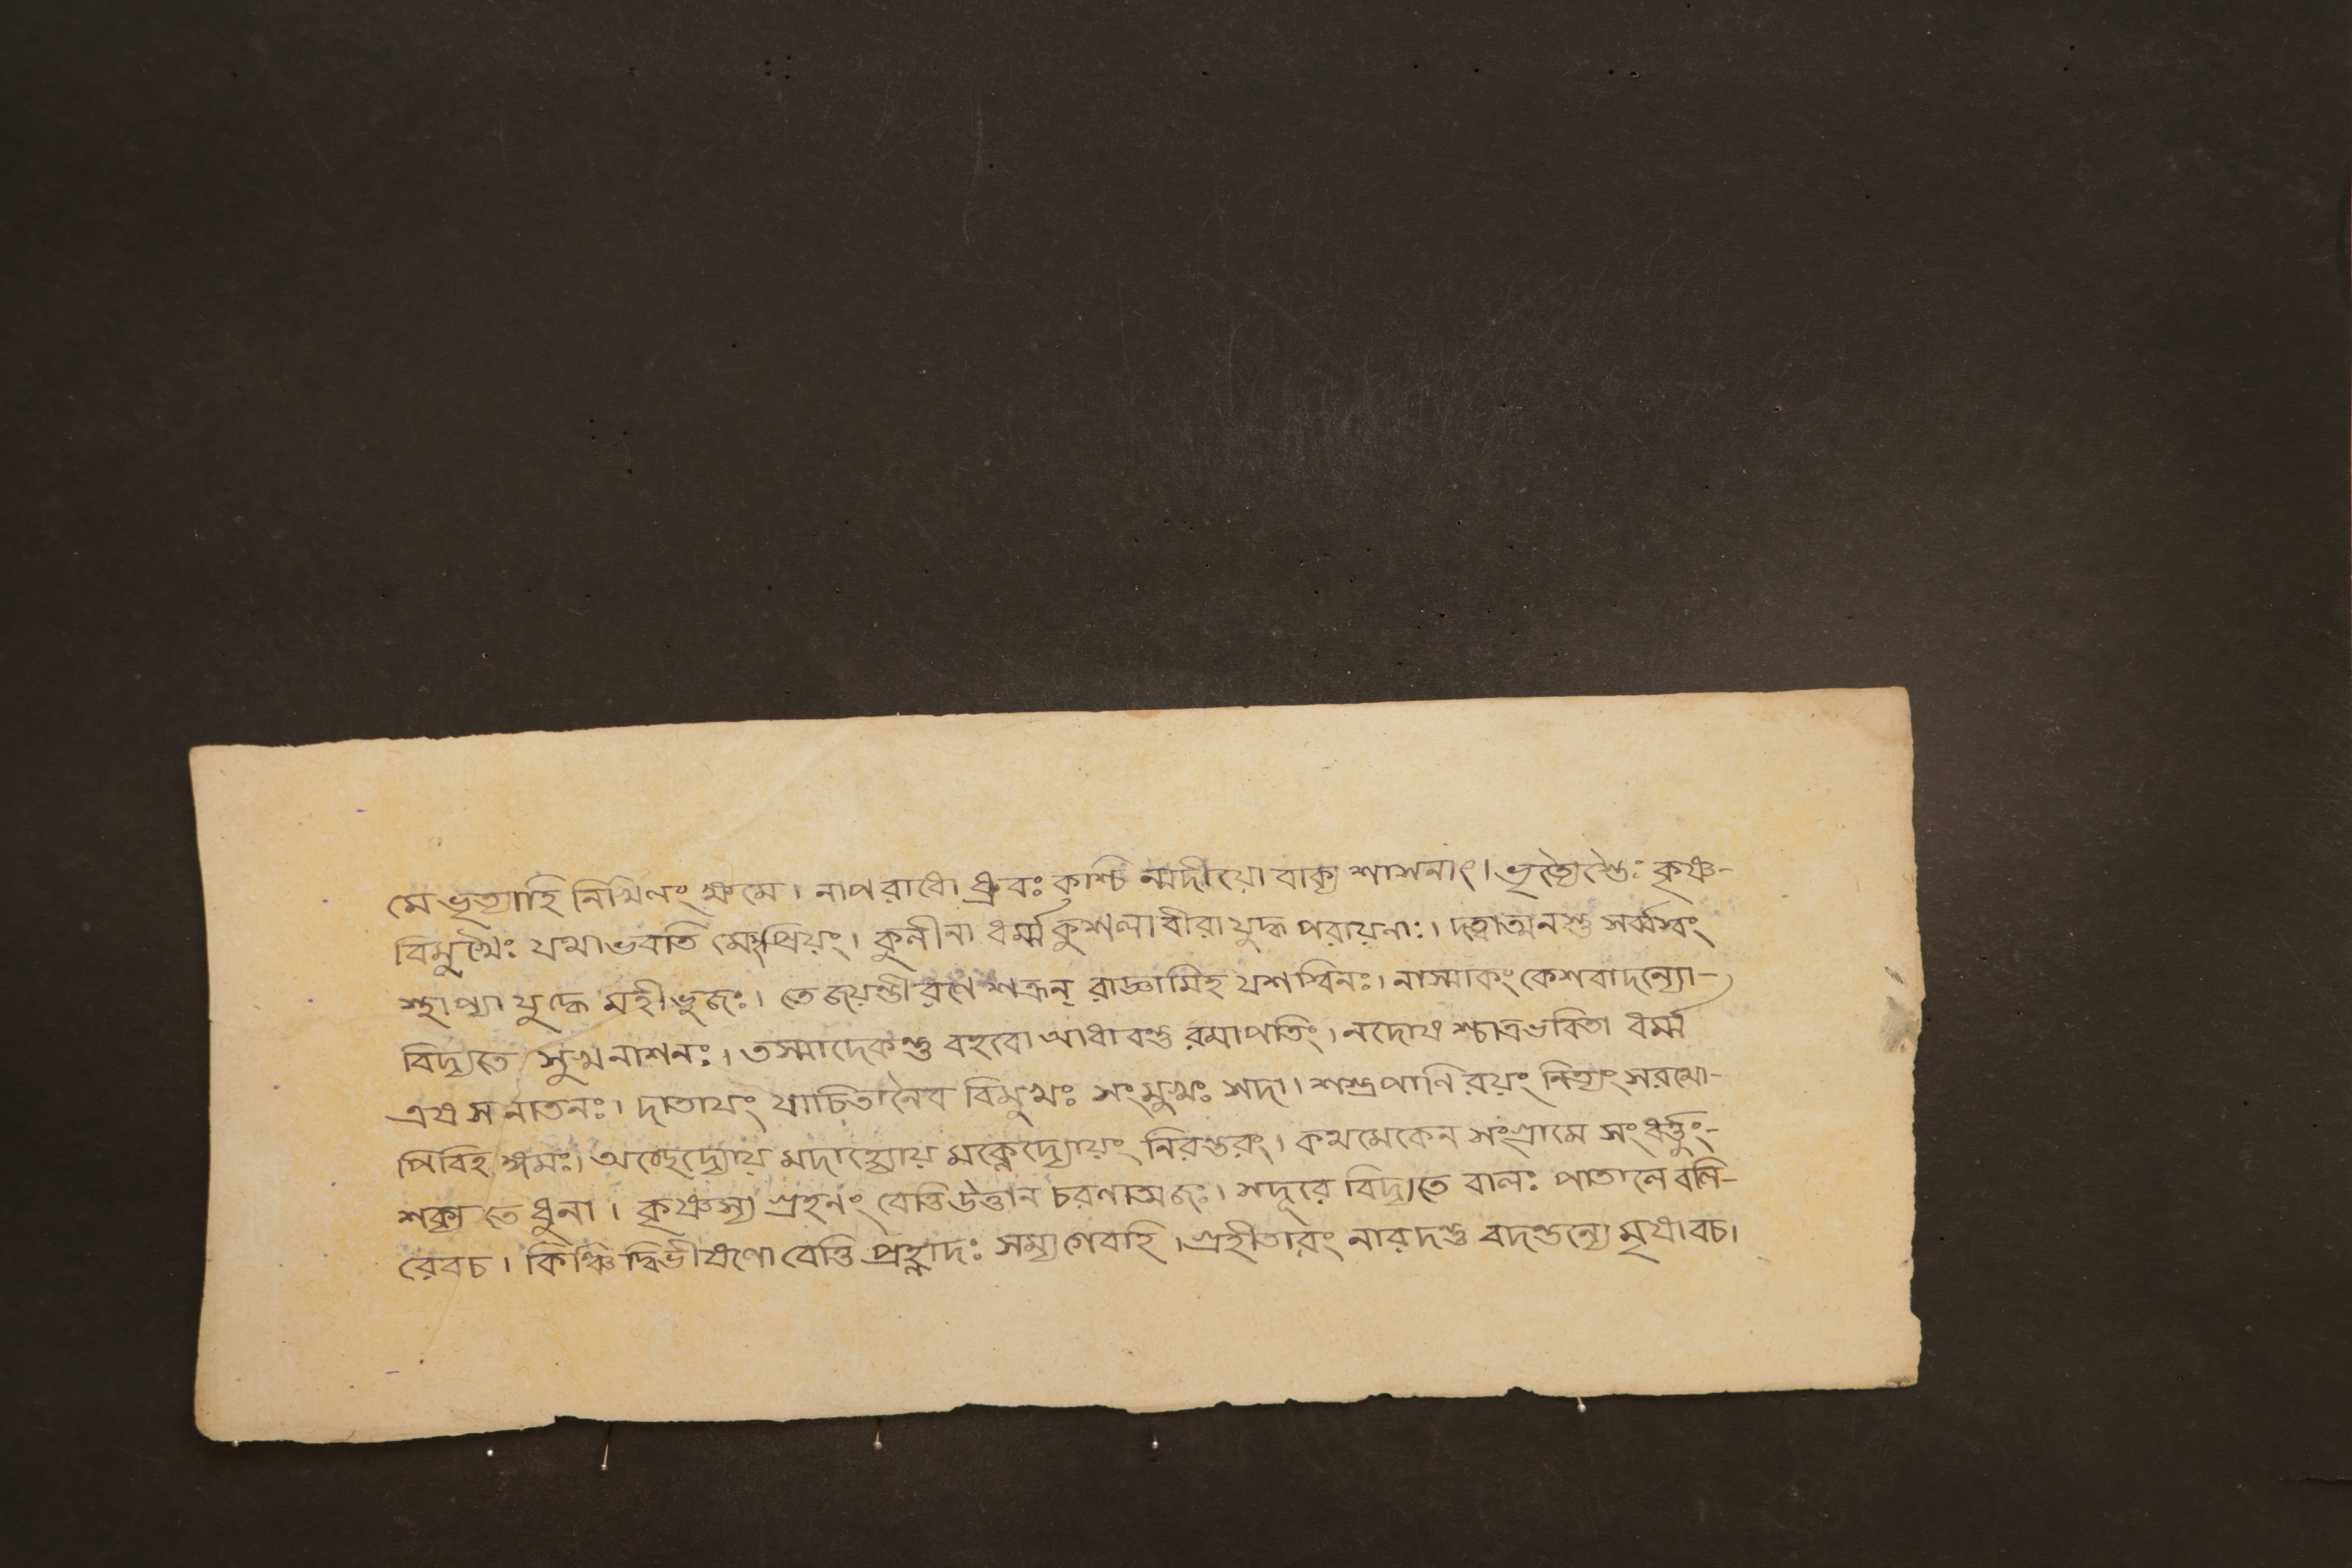 মে ভৃত্যাহি নিখিলং ক্ষমে । নাপরাধো ধ্রুবঃ কশ্চি ন্মদীয়ো বাক্য শাসনাৎ । ভৃত্যৈস্তৈঃ কৃষ্ণ-
বিমুখৈঃ যথাভবতি মেঽপ্রিয়ং । কুলীনা ধর্ম্মকুশলা বীরা যুদ্ধ পরায়নাঃ । দত্বাত্মনস্তু সর্ব্বস্বং
স্থাপ্যা যুদ্ধে মহীভুজঃ । তে জয়ন্তী রণে শত্রূন্ রাজ্ঞামিহ যশস্বিনঃ । নাস্মাকং কেশবাদন্যো-
বিদ্যতে সুখনাশনঃ । তস্মাদেকন্তু বহবো আধাবন্তু রমাপতিং । নদোষ শ্চাত্রভবিতা ধর্ম্ম
এষ সনাতনঃ । দাতাযং যাচিতানৈব বিমুখঃ সংমুখঃ সদা । শস্ত্রপাণি রয়ং নিত্যং সরথো-
পিবিহ ঙ্গমঃ । অচ্ছেদ্যোয় মদাহ্যোয় মক্লেদ্যোয়ং নিরন্তরং । কথমেকেন সংগ্রামে সংধর্ত্তুং-
শক্য তে ধুনা । কৃষ্ণস্য গ্রহনং বেত্তি উত্তান চরণাত্মজঃ । সদূরে বিদ্যতে বালঃ পাতালে বলি-
রেবচ । কিঞ্চিদ্বিভীষণো বেত্তি প্রহ্লাদঃ সম্যগেবাহি । গ্রহীতারং নারদন্তু বদন্ত্যন্যে মৃষাবচ ।